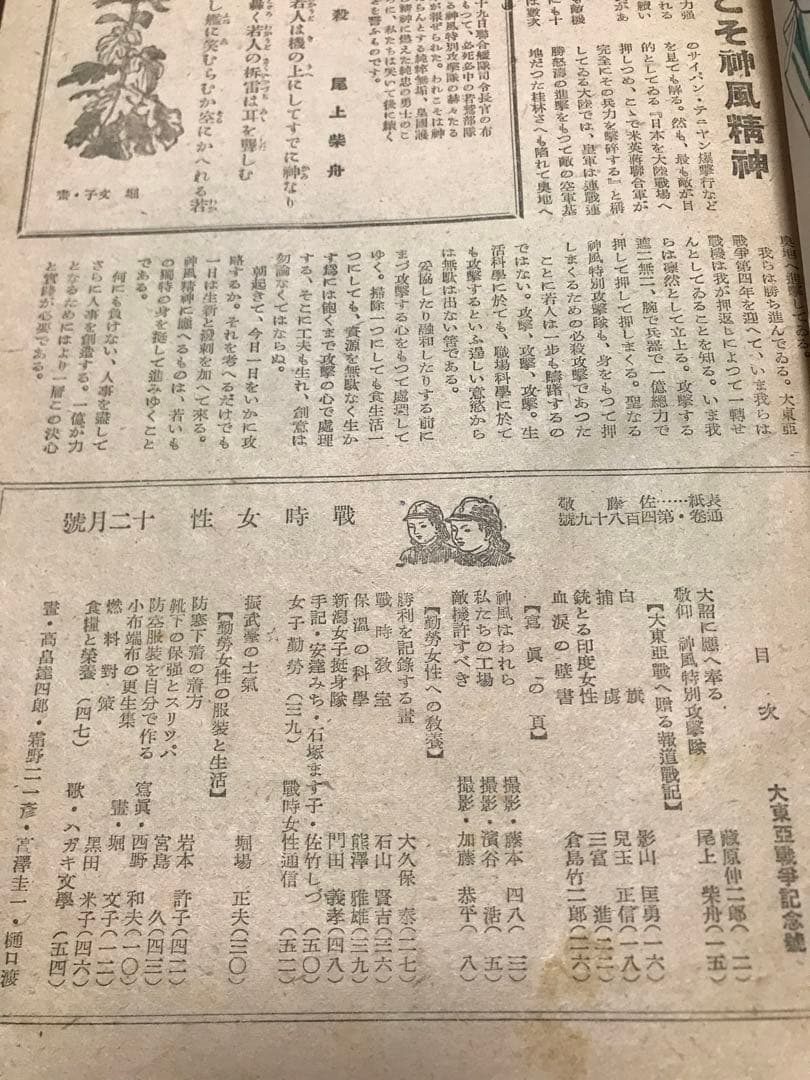 こそ神風精神
のサイパン・テニヤン爆撃行など
を見ても解る。然も、最も敵が目
的としてゐる『日本を大陸戰場へ
押しつめ、こゝで米英蔣聯合軍が
完全にその兵力を擊碎する』と稱
してゐる大陸では、皇軍は連戰連
勝怒濤の進擊をもつて敵の空軍基
地だつた桂林さへも陥れて奥地へ
殺 尾上柴舟
若人は機の上にしてすでに神なり
轟く若人の折雷は耳を聾しむ
し艦に笑むらむか空にかへれる若
堀 文子・畫
我らは勝ち進んでゐる。大東亞
戰爭第四年を迎へて、いま我らは
戰機は我が押返しによつて一轉せ
んとしてゐることを知る。いま我
らは凛然として立上る。攻擊する
遮二無二、腕で兵器で一億總力で
押して押して押しまくる。聖なる
神風特別攻擊隊も、身をもつて押
しまくるための必殺攻擊であつた
ことに若人は一歩も躊躇するの
ではない。攻擊、攻擊、攻擊。生
活科學に於ても、職場科學に於て
も攻擊するといふ逞しい意慾から
は無駄は出ない筈である。
妥協したり融和したりする前に
まづ攻擊する心をもつて處理して
ゆく。掃除一つにしても食生活一
つにしても、資源を無駄なく生か
す爲には飽くまで攻擊の心で處理
する、そこに工夫も生れ、創意は
勿論なくてはならぬ。
朝起きて、今日一日をいかに攻
略するか。それを考へるだけでも
一日は生新と潑剌を加へて來る。
神風精神に應へるものは、若いも
の獨特の身を挺して進みゆくこと
である。
何にも負けない、人事を盡して
さらに人事を創造する。一億が力
となるためにはより一層この決心
と實踐が必要である。
戰時女性 十二月號
表紙……佐藤 敬
通卷・第四百八十九號
目次
大東亞戰爭記念號
大詔に應へ奉る 藏原伸二郎(二)
敬仰 神風特別攻擊隊 尾上柴舟(一五)
【大東亞戰へ贈る報道戰記】
白旗 影山 匡勇(一六)
捕虜 兒玉 正信(一八)
銃とる印度女性 三富 進(二二)
血淚の壁書 倉島竹二郎(二六)
【寫眞の頁】
神風はわれら 撮影・藤本 四八(三)
私たちの工場 撮影・濱谷 浩(五)
敵機許すべき 撮影・加藤 恭平(八)
【勤勞女性への敎養】
勝利を記錄する畫 大久保 泰(二七)
戰時敎室 石山 賢吉(三六)
保溫の科學 熊澤 雅雄(三九)
新潟女子挺身隊 門田 義孝(四八)
手記・安達みち・石塚ます子・佐竹しづ(五〇)
女子勤勞(三九) 戰時女性通信(五二)
振武臺の士氣 堀場 正夫(三〇)
【勤勞女性の服裝と生活】
防寒下着の着方 岩本 許子(四二)
靴下の保强とスリッパ 宮島 久(四三)
防空服裝を自分で作る 寫眞・西野 和夫(一〇)
小布端布の更生集 畫・堀 文子(一二)
燃料對策 黑田 米子(四六)
食糧と榮養(四七) 歌・ハガキ文學(五四)
畫・高畠達四郎・霜野二一彥・宮澤圭一・樋口渡